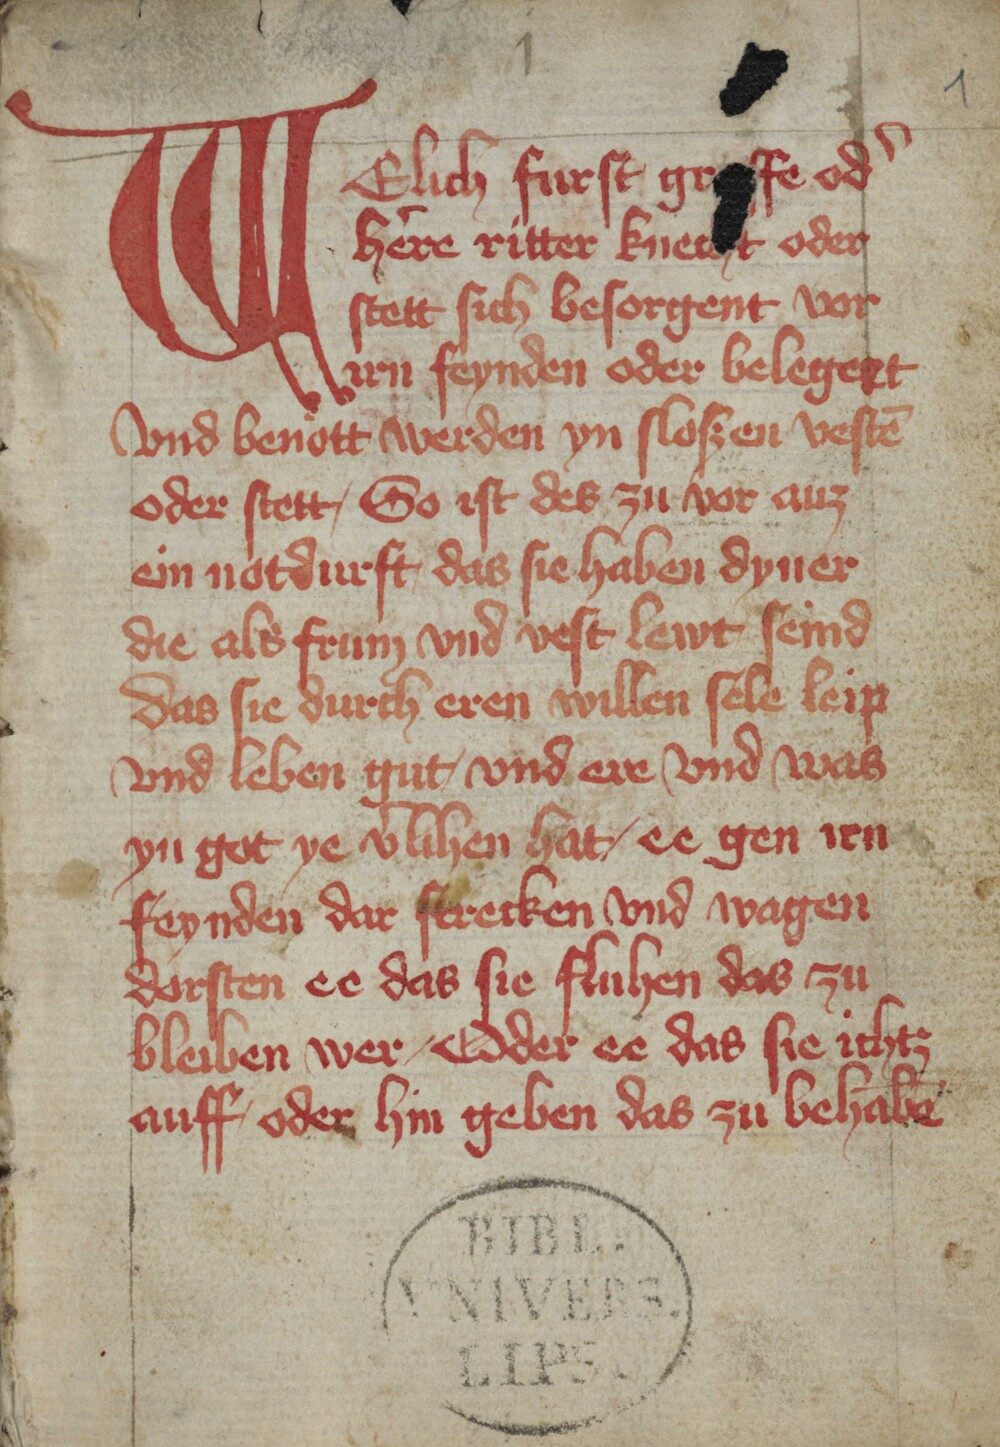 1
1
WElich furst gr ffe od̛
here ritter knecht oder
stett sich besorgent vor
irn feynden oder belegert
vnd benott werden yn sloszen vestē
oder stett / So ist des zu vor auz
ein notdurft das sie haben dyner
die als frum vnd vest lewt seind
Das sie durch eren willen sele leip
vnd leben gut / vnd ere vnd was
yn got ye v̄lihen hat / ee gen irn
feynden dar strecken vnd wagen
dorsten ee das sie fluhen das zu
bleiben wer / Oder ee das sie ichtz
auff / oder hin geben das zu behabē
BIBL.
VNIVERS.
LIPS.